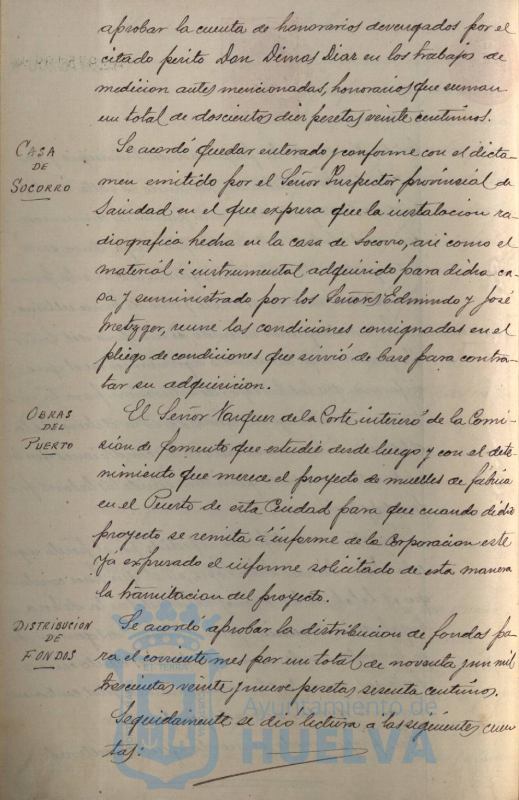 aprobar la cuenta de honorarios devengados por el
citado perito Don Dimas Diaz en los trabajos de
medicion antes mencionadas, honorarios que suman
un total de doscientos diez pesetas veinte centimos.
CASA
DE
SOCORRO
Se acordó quedar enterado y conforme con el dicta-
men emitido por el Señor Inspector provincial de
Sanidad en el que expresa que la instalacion ra-
diografica hecha en la casa de Socorro, asi como el
material é instrumental adquirido para dicha ca-
sa y suministrado por los Señores Edmundo y José
Metzger, reune las condiciones consignadas en el
pliego de condiciones que sirvió de base para contra-
tar su adquisicion.
OBRAS
DEL
PUERTO
El Señor Vazquez de la Corte interesó de la Comi-
sion de fomento que estudie desde luego y con el dete-
nimiento que merece el proyecto de muelles de fábrica
en el Puerto de esta Ciudad para que cuando dicho
proyecto se remita á informe de la Corporacion este
ya expresado el informe solicitado de esta manera
la tramitacion del proyecto.
DISTRIBUCION
DE
FONDOS
Se acordó aprobar la distribucion de fondos pa-
ra el corriente mes por un total de noventa y un mil
trescientas veinte y nueve pesetas sesenta centimos.
Seguidamente se dio lectura a las siguientes cuen-
tas:
Ayuntamiento de
HUELVA